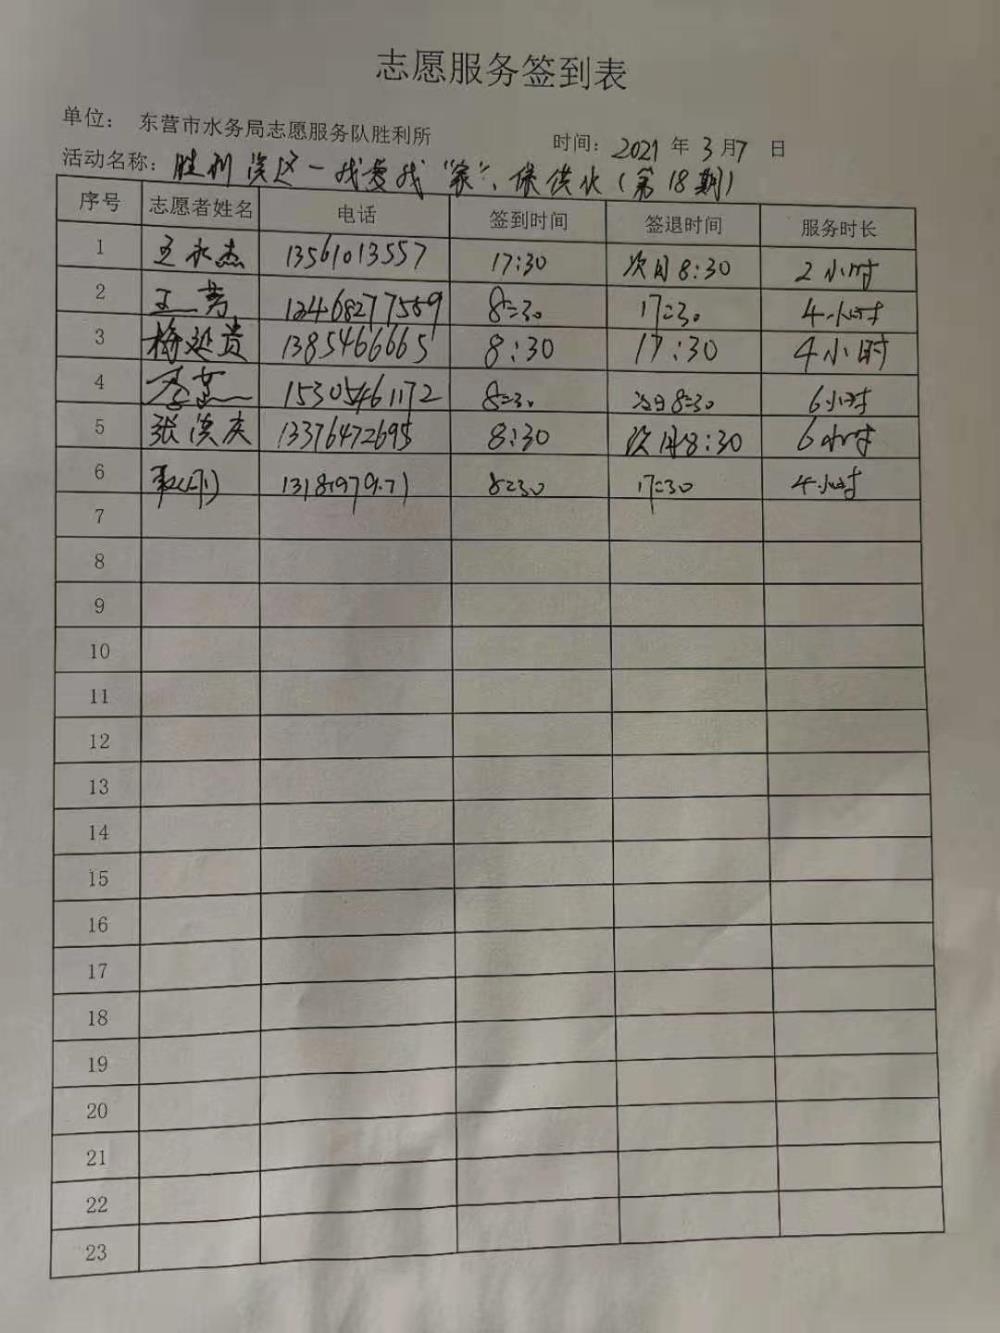 志愿服务签到表
单位： 东营市水务局志愿服务队胜利所 时间：2021 年 3 月 7 日
活动名称：胜利滨区一我爱我“家”、保供水（第18期）
序号 志愿者姓名 电话 签到时间 签退时间 服务时长
1 王永杰 13561013557 17:30 次日8:30 2小时
2 王芳 8:30 17:30 4小时
3 梅延贵 1385466665 8:30 17:30 4小时
4 15305461172 8:30 次日8:30 6小时
5 张滨庆 13376472695 8:30 次日8:30 6小时
6 8:30 17:30 4小时
7
8
9
10
11
12
13
14
15
16
17
18
19
20
21
22
23